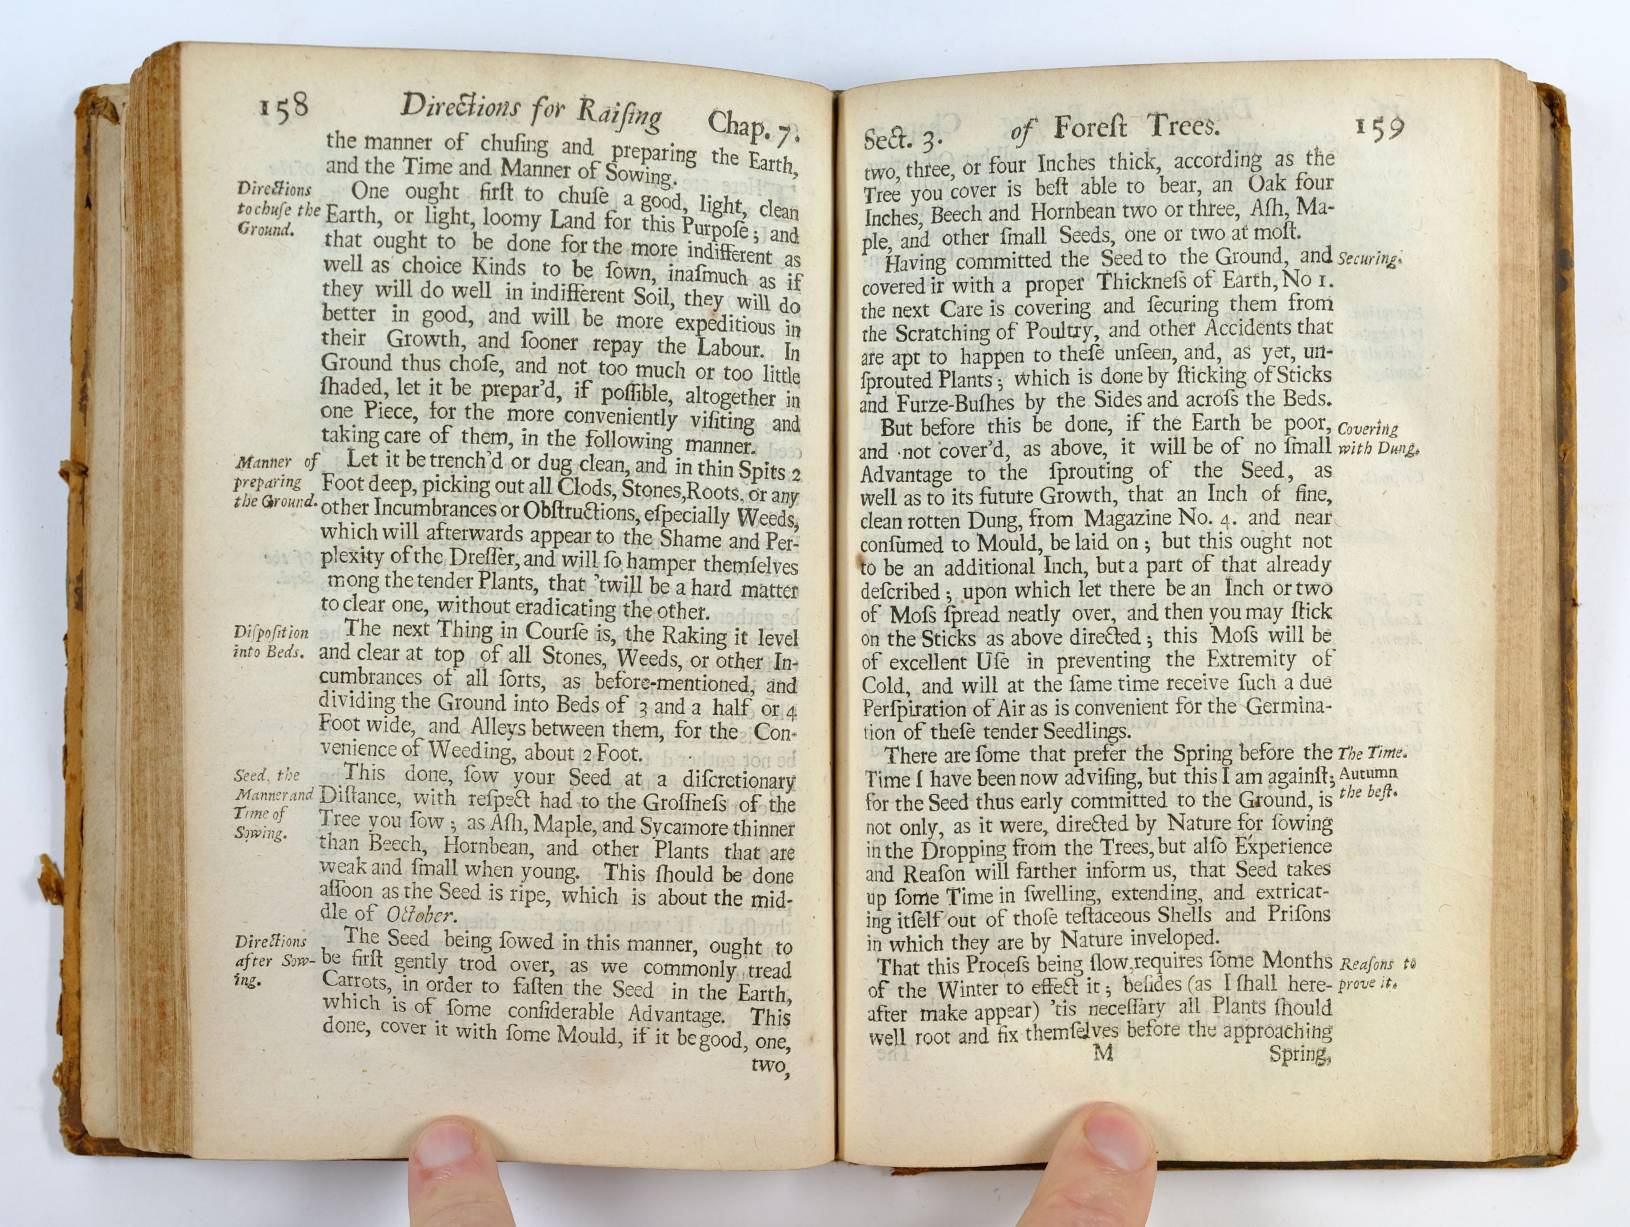 158 Directions for Raiſing Chap. 7.
the manner of chuſing and preparing the Earth,
and the Time and Manner of Sowing.
Directions
to chuſe the
Ground.
One ought firſt to chuſe a good, light, clean
Earth, or light, loomy Land for this Purpoſe; and
that ought to be done for the more indifferent as
well as choice Kinds to be ſown, inaſmuch as if
they will do well in indifferent Soil, they will do
better in good, and will be more expeditious in
their Growth, and ſooner repay the Labour. In
Ground thus choſe, and not too much or too little
ſhaded, let it be prepar'd, if poſſible, altogether in
one Piece, for the more conveniently viſiting and
taking care of them, in the following manner.
Manner of
preparing
the Ground.
Let it be trench'd or dug clean, and in thin Spits 2
Foot deep, picking out all Clods, Stones, Roots, or any
other Incumbrances or Obſtructions, eſpecially Weeds,
which will afterwards appear to the Shame and Per-
plexity of the Dreſſer, and will ſo hamper themſelves
mong the tender Plants, that 'twill be a hard matter
to clear one, without eradicating the other.
Diſpoſition
into Beds.
The next Thing in Courſe is, the Raking it level
and clear at top of all Stones, Weeds, or other In-
cumbrances of all ſorts, as before-mentioned, and
dividing the Ground into Beds of 3 and a half or 4
Foot wide, and Alleys between them, for the Con-
venience of Weeding, about 2 Foot.
Seed, the
Manner and
Time of
Sowing.
This done, ſow your Seed at a diſcretionary
Diſtance, with reſpect had to the Groſſneſs of the
Tree you ſow; as Aſh, Maple, and Sycamore thinner
than Beech, Hornbean, and other Plants that are
weak and ſmall when young. This ſhould be done
aſſoon as the Seed is ripe, which is about the mid-
dle of October.
Directions
after Sow-
ing.
The Seed being ſowed in this manner, ought to
be firſt gently trod over, as we commonly tread
Carrots, in order to faſten the Seed in the Earth,
which is of ſome conſiderable Advantage. This
done, cover it with ſome Mould, if it be good, one,
two,
Sect. 3. of Foreſt Trees. 159
two, three, or four Inches thick, according as the
Tree you cover is beſt able to bear, an Oak four
Inches, Beech and Hornbean two or three, Aſh, Ma-
ple, and other ſmall Seeds, one or two at moſt.
Having committed the Seed to the Ground, and
covered ir with a proper Thickneſs of Earth, No 1.
the next Care is covering and ſecuring them from
the Scratching of Poultry, and other Accidents that
are apt to happen to theſe unſeen, and, as yet, un-
ſprouted Plants; which is done by ſticking of Sticks
and Furze-Buſhes by the Sides and acroſs the Beds.
Securing.
But before this be done, if the Earth be poor,
and not cover'd, as above, it will be of no ſmall
Advantage to the ſprouting of the Seed, as
well as to its future Growth, that an Inch of fine,
clean rotten Dung, from Magazine No. 4. and near
conſumed to Mould, be laid on; but this ought not
to be an additional Inch, but a part of that already
deſcribed; upon which let there be an Inch or two
of Moſs ſpread neatly over, and then you may ſtick
on the Sticks as above directed; this Moſs will be
of excellent Uſe in preventing the Extremity of
Cold, and will at the ſame time receive ſuch a due
Perſpiration of Air as is convenient for the Germina-
tion of theſe tender Seedlings.
Covering
with Dung.
There are ſome that prefer the Spring before the
Time I have been now adviſing, but this I am againſt;
for the Seed thus early committed to the Ground, is
not only, as it were, directed by Nature for ſowing
in the Dropping from the Trees, but alſo Experience
and Reaſon will farther inform us, that Seed takes
up ſome Time in ſwelling, extending, and extricat-
ing itſelf out of thoſe teſtaceous Shells and Priſons
in which they are by Nature inveloped.
The Time.
Autumn
the beſt.
That this Proceſs being ſlow, requires ſome Months
of the Winter to effect it; beſides (as I ſhall here-
after make appear) 'tis neceſſary all Plants ſhould
well root and fix themſelves before the approaching
Reaſons to
prove it.
M Spring,